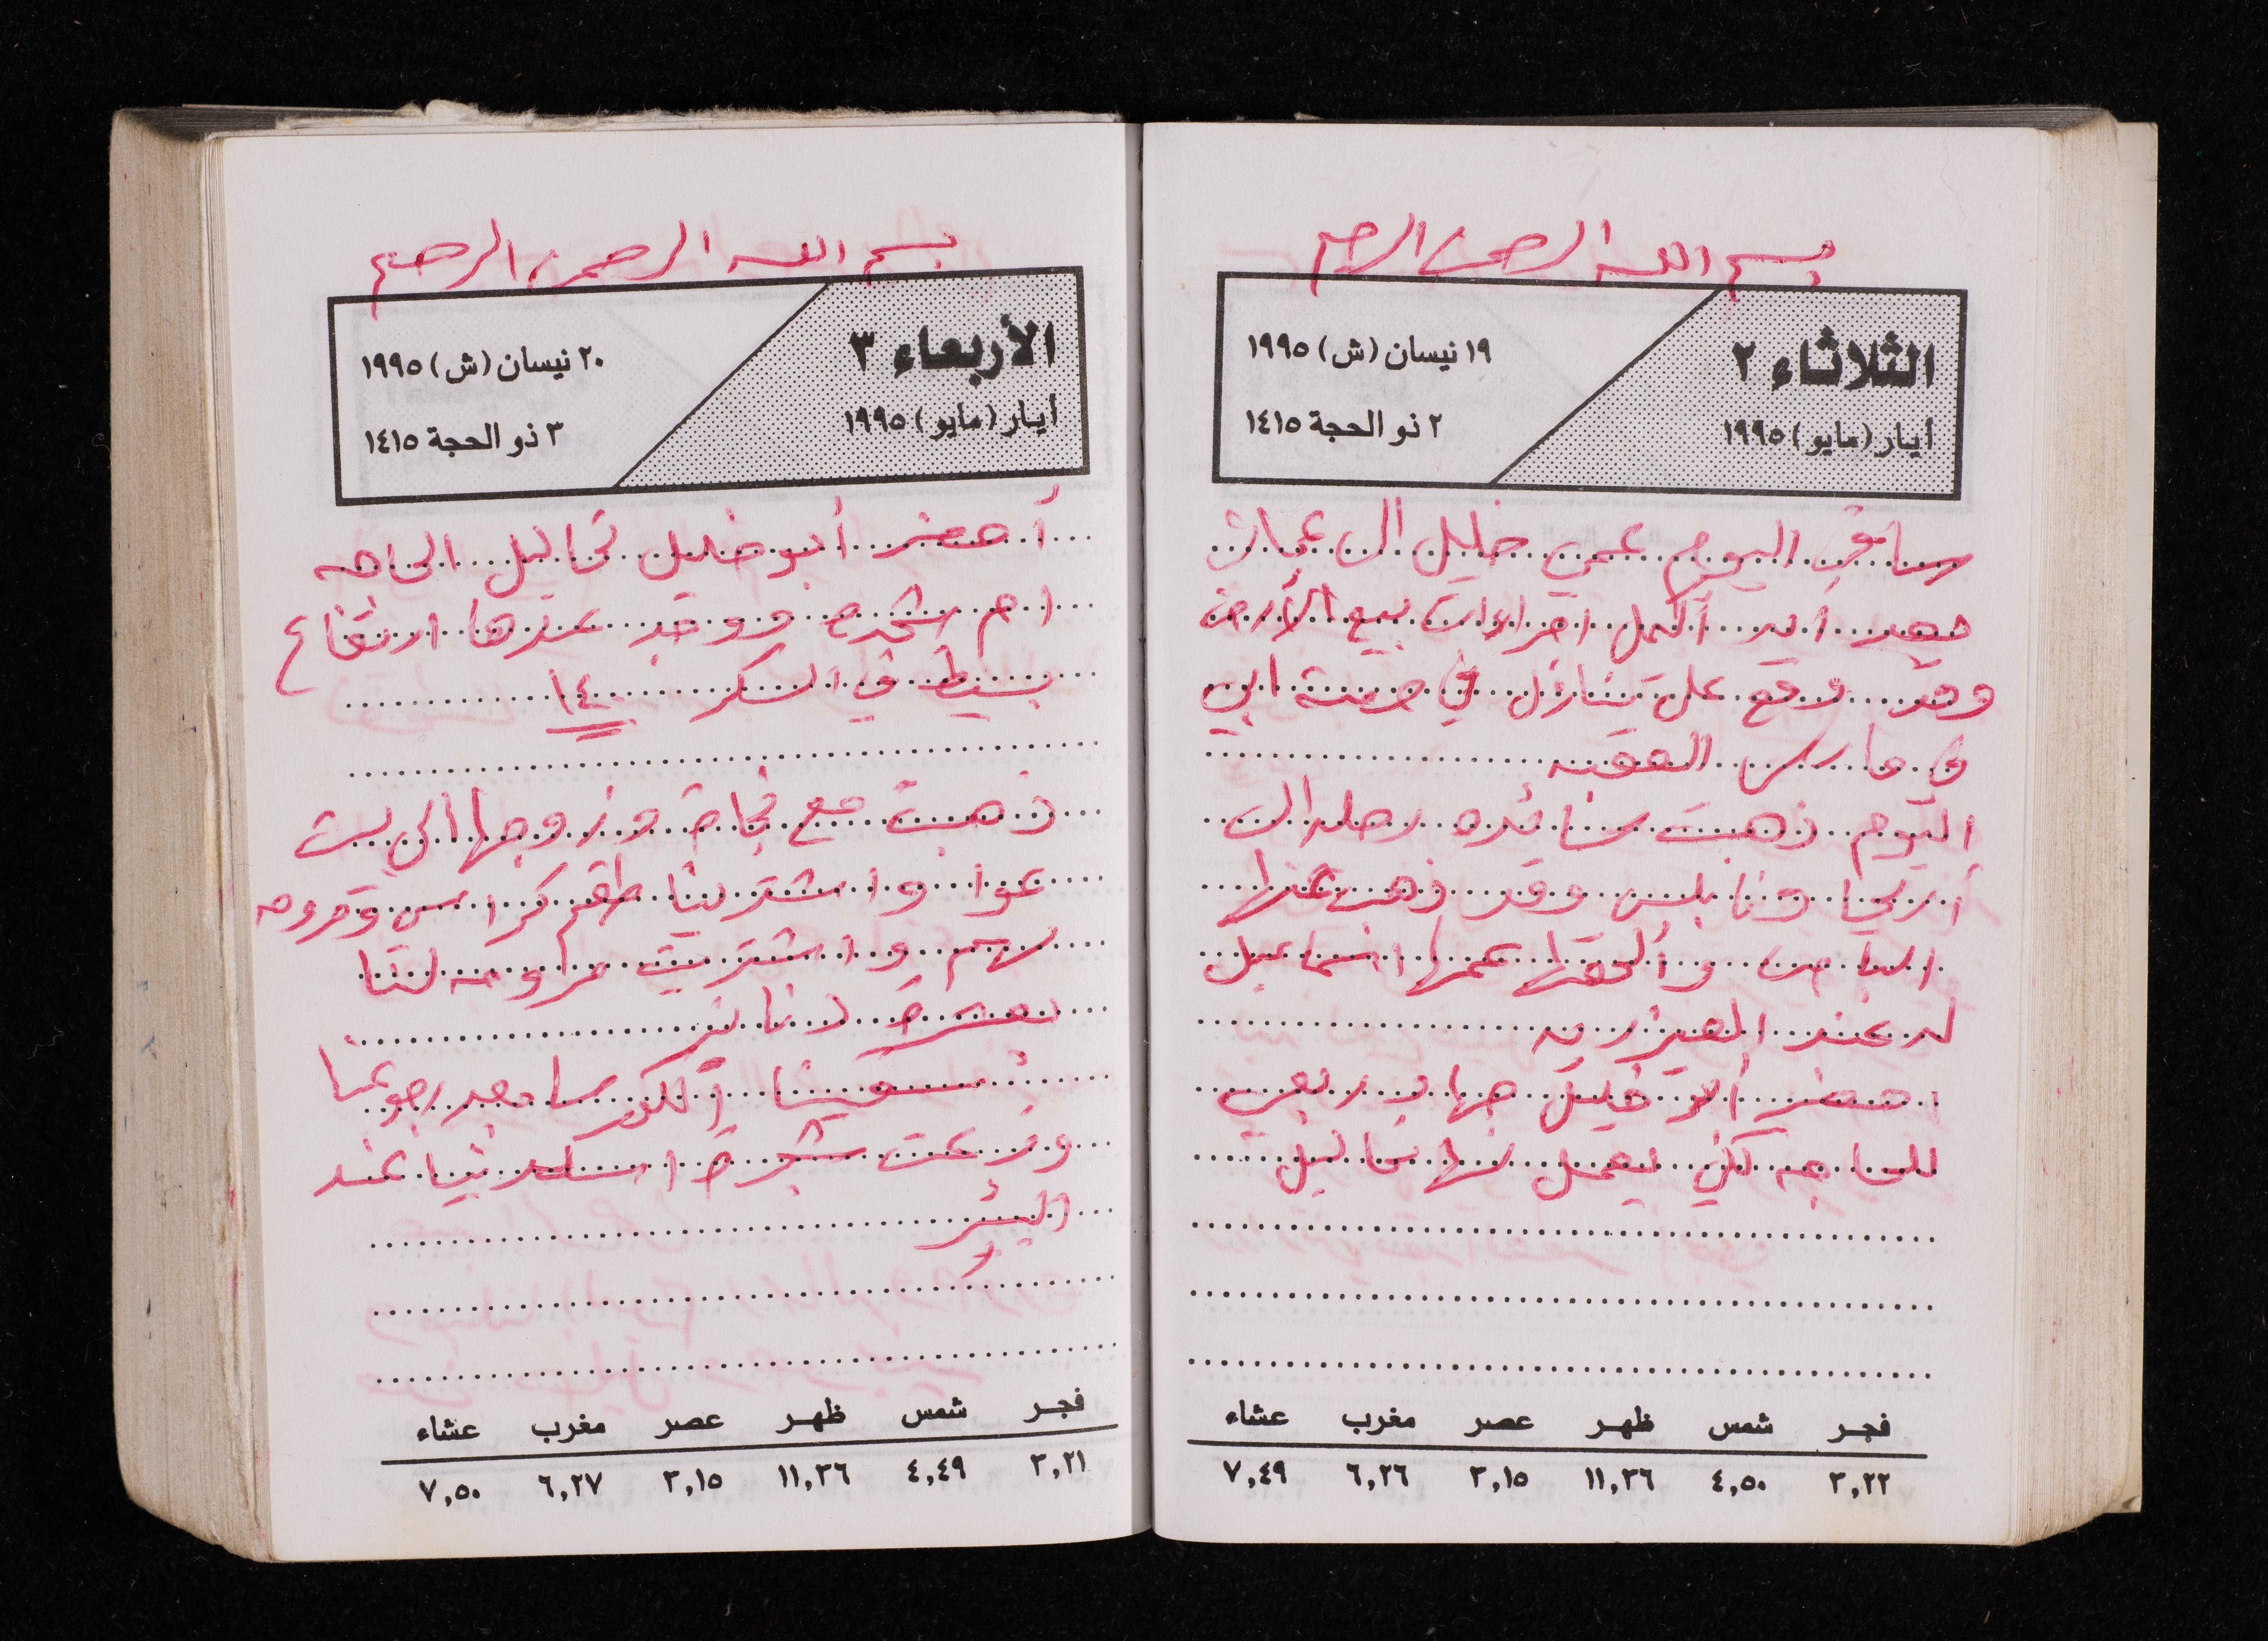 بسم الله الرحمن الرحيم
الثلاثاء ٢
١٩ نيسان (ش) ١٩٩٥
أيار (مايو) ١٩٩٥
٢ ذو الحجة ١٤١٥
سافر اليوم عمي خليل الى عمان
بعد أن أكمل اجراءات بيع الأرض
وقد وقع على تنازل في حصة ابي
في العقبه
اليوم ذهبت سائده رحله الى
أريحا ونابلس وقد ذهب عنها
الباص وألحقها عمها اسماعيل
له عند العيزريه
احضر أبو خليل جهاز
للحاجه لكي يعمل لها تحاليل
فجر شمس ظهر عصر مغرب عشاء
٣,٢٢ ٤,٥٠ ١١,٣٦ ٣,١٥ ٦,٢٦ ٧,٤٩
بسم الله الرحمن الرحيم
الأربعاء ٣
٢٠ نيسان (ش) ١٩٩٥
أيار (مايو) ١٩٩٥
٣ ذو الحجة ١٤١٥
أحضر أبو خليل تحاليل الحاجه
ام شحده ووجد عندها ارتفاع
بسيط في السكر ١٤٠
ذهبت مع نجاح وزوجها الى بيت
عوا واشترينا طقم كراسي ومروحه
لهم واشتريت مروحه لنا
بعشرة دنانير
سقينا الكوسا بعد رجوعنا
وزرعت شجرة اسكدنيا عند
البئر
فجر شمس ظهر عصر مغرب عشاء
٣,٢١ ٤,٤٩ ١١,٣٦ ٣,١٥ ٦,٢٧ ٧,٥٠